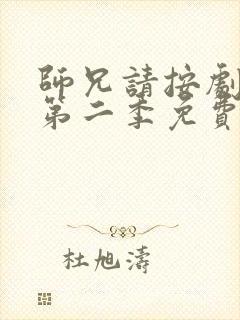 師兄請按劇
第二季免費
杜旭濤